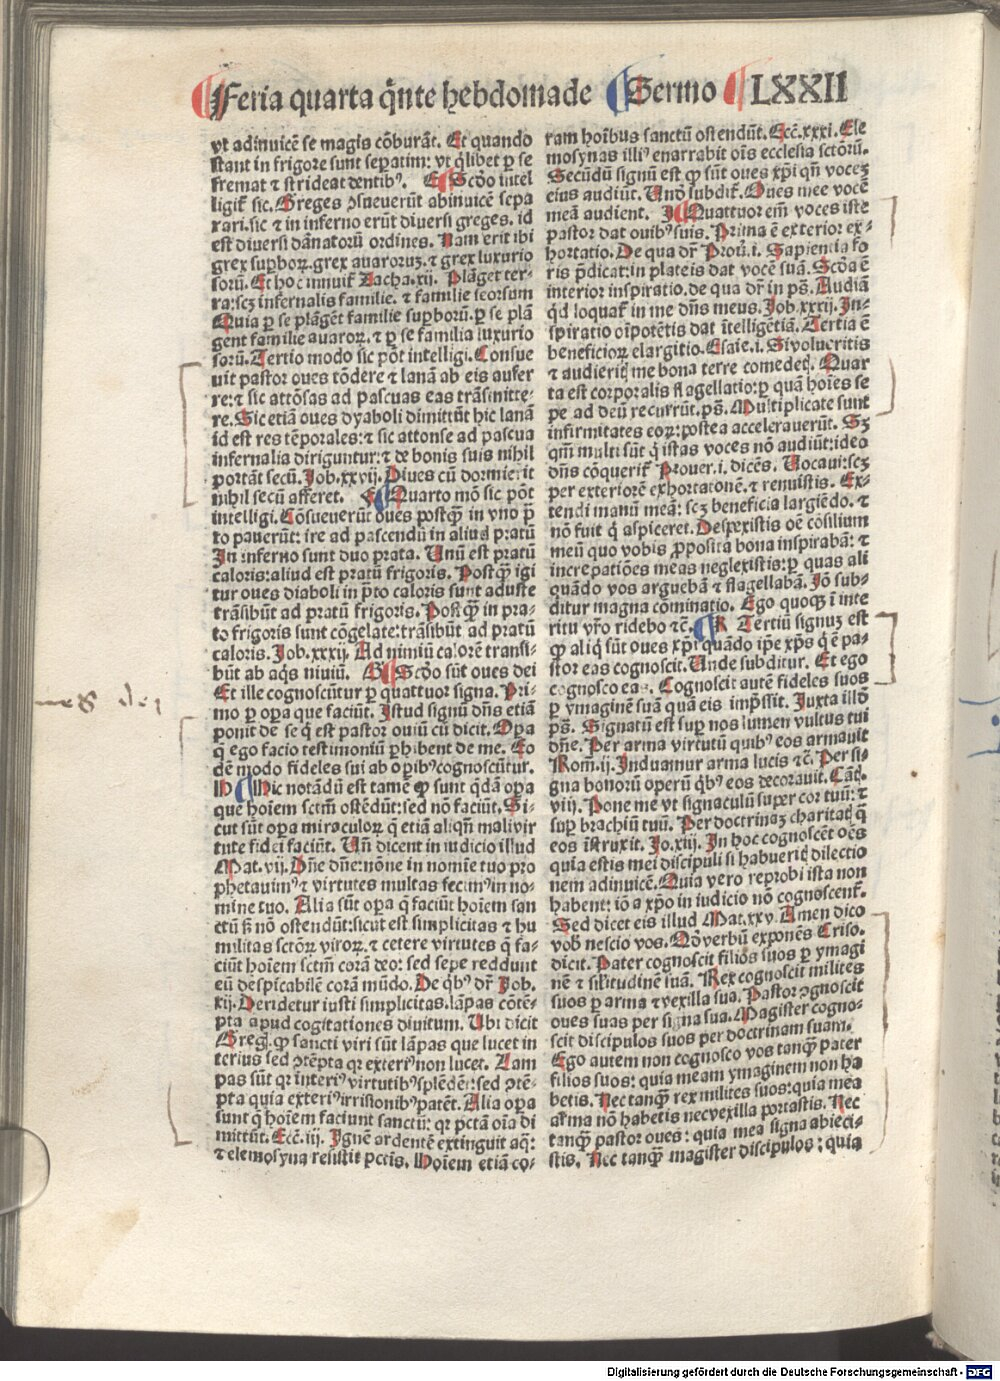 Feria quarta q̃nte hebdomade Sermo LXXII
vt adinuicẽ se magis cõburãt. Et quando
stant in frigore sunt seꝑatim: vt q̃libet ꝑ se
fremat ⁊ strideat dentibꝰ. E Scd̃o intel
ligit̃ sic. Greges ↄsueuerũt abinuicẽ sepa
rari. sic ⁊ in inferno erũt diuersi greges. id
est diuersi dãnatorũ ordines. Nam erit ibi
grex suꝑborꝝ. grex auaroruꝫ. ⁊ grex luxurio
sorũ. Et hoc innuit̃ Zacha. xij. Plãget ter-
ra: scꝫ infernalis familie. ⁊ familie seorsum
Quia ꝑ se plãgẽt familie suꝑborũ. ꝑ se plã
gent familie auarorꝝ. ⁊ ꝑ se familia luxurio
sorũ. Tertio modo sic põt intelligi. Consue
uit pastor oues tõdere ⁊ lanã ab eis aufer
re: ⁊ sic attõsas ad pascuas eas trãsmitte-
re. Sic etiã oues dyaboli dimittũt hic lanã
id est res tẽporales: ⁊ sic attonse ad pascua
infernalia diriguntur: ⁊ de bonis suis nihil
portãt secũ. Job. xxvij. Diues cũ dormierit
nihil secũ afferet. F Quarto mõ sic põt
intelligi. Cõsueuerũt oues postꝗ̃ in vno p̃
to pauerũt: ire ad pascendũ in aliud pratũ
In inferno sunt duo prata. Unũ est pratũ
caloris: aliud est pratũ frigoris. Postꝗ̃ igi
tur oues diaboli in p̃to caloris sunt aduste
trãsibũt ad pratũ frigoris. Postꝗ̃ in pra-
to frigoris sunt cõgelate: trãsibũt ad pratũ
caloris. Job. xxxij. Ad nimiũ calorẽ transi-
bũt ab aq̃s niuiũ. G Scd̃o sũt oues dei
Et ille cognoscũtur ꝑ quattuor signa. Pri-
mo ꝑ oꝑa que faciũt. Istud signũ dñs etiã
ponit de se q̃ est pastor ouiũ cũ dicit. Oꝑa
q̃ ego facio testimoniũ ꝑhibent de me. Eo
dẽ modo fideles sui ab oꝑibꝰ cognoscũtur.
H Hic notãdũ est tamẽ ꝙ sunt q̃dã oꝑa
que hoĩem sctm̃ ostẽdũt: sed nõ faciũt. Si-
cut sũt oꝑa miraculorꝝ q̃ etiã aliqñ mali vir
tute fidei faciũt. Uñ dicent in iudicio illud
Mat. vij. Dñe dñe: nõne in nomĩe tuo pro
phetauimꝰ ⁊ virtutes multas fecimꝰ in no-
mine tuo. Alia sũt oꝑa q̃ faciũt hoĩem san
ctũ sꝫ nõ ostendũt: sicut est simplicitas ⁊ hu
militas sctõrꝝ virorꝝ. ⁊ cetere virtutes q̃ fa-
ciũt hoĩem sctm̃ corã deo: sed sepe reddunt
eũ despicabilẽ corã mũdo. De q̃bꝰ dr̃ Job.
xij. Deridetur iusti simplicitas. lãpas cõtẽ-
pta apud cogitationes diuitum. Ubi dicit
Greg. ꝙ sancti viri sũt lãpas que lucet in
terius sed ↄtẽpta qꝛ exteriꝰ non lucet. Lam
pas sũt qꝛ ĩteriꝰ virtutibꝰ splẽdẽt: sed ↄtẽ-
pta quia exteriꝰ irrisionibꝰ patẽt. Alia oꝑa
sunt q̃ hoĩem faciunt sanctũ: qꝛ pctã oĩa di
mittũt. Ecc̃. iij. Ignẽ ardentẽ extinguit aq̃:
⁊ elemosyna resistit pctĩs. Hoĩem etiã co-
ram hoĩbus sanctũ ostendũt. Ecc̃. xxxi. Ele
mosynas illiꝰ enarrabit oĩs ecclesia sctõrũ.
Secũdũ signũ est ꝙ sũt oues xp̃i qñ voceꝫ
eius audiũt. Unõ subdit̃. Oues mee vocẽ
meã audient. J Quattuor em̃ voces iste
pastor dat ouibꝰ suis. Prima ẽ exterior ex-
hortatio. De qua dr̃ Prou̇. i. Sapiencia fo
ris p̃dicat: in plateis dat vocẽ suã. Scd̃a ẽ
interior inspiratio. de qua dr̃ in ps̃. Audiã
q̃d loquat̃ in me dñs meus. Job. xxxij. In-
spiratio oĩpotẽtis dat ĩtelligẽtiã. Tertia ẽ
beneficiorꝝ elargitio. Esaie. i. Si volueritis
⁊ audieritꝭ me bona terre comedetꝭ. Quar
ta est corporalis flagellatio: ꝑ quã hoĩes se
pe ad deũ recurrũt. ps̃. Multiplicate sunt
infirmitates eorꝝ: postea accelerauerũt. Sꝫ
qm̃ multi sũt q̃ istas voces nõ audiũt: ideo
dñs cõquerit̃ Prouer. i. dicẽs. Uocaui: scꝫ
per exteriorẽ exhortationẽ. ⁊ renuistis. Ex-
tendi manũ meã: scꝫ beneficia largiẽdo. ⁊
nõ fuit q̃ aspiceret. Despexistis oẽ cõsilium
meũ quo vobis ꝓposita bona inspirabã: ⁊
increpatiões meas neglexistis: ꝑ quas ali
quãdo vos arguebã ⁊ flagellabã. Jõ sub-
ditur magna cõminatio. Ego quoqꝫ ĩ inte
ritu vr̃o ridebo ⁊c̃. K Tertiũ signuꝫ est
ꝙ aliq̃ sũt oues xp̃i quãdo ip̃e xp̃s q̃ ẽ pa-
stor eas cognoscit. Unde subditur. Et ego
cognosco eas. Cognoscit autẽ fideles suos
ꝑ ymaginẽ suã quã eis imp̃ssit. Juxta illd̃
ps̃. Signatũ est suꝑ nos lumen vultus tui
dñe. Per arma virtutũ quibꝰ eos armauit
Rom. ij. Induamur arma lucis ⁊c̃. Per si-
gna bonorũ operũ q̃bꝰ eos decorauit. Cãt̃.
viij. Pone me vt signaculũ super cor tuũ: ⁊
suꝑ brachiũ tuũ. Per doctrinaꝫ charitatꝭ q̃
eos ĩstruxit. Jo. xiij. In hoc cognoscẽt oẽs
quia estis mei discipuli si habueritꝭ dilectio
nem adinuicẽ. Quia vero reprobi ista non
habent: iõ a xp̃o in iudicio nõ cognoscent̃.
Sed dicet eis illud Mat. xxv. Amen dico
vob̃ nescio vos. Qd̃ verbũ exponẽs Criso.
dicit. Pater cognoscit filios suos ꝑ ymagi
nẽ ⁊ sil̃itudinẽ suã. Rex cognoscit milites
suos ꝑ arma ⁊ vexilla sua. Pastor ↄgnoscit
oues suas per signa sua. Magister cogno-
scit discipulos suos per doctrinam suam.
Ego autem non cognosco vos tanꝗ̃ pater
filios suos: quia meam ymaginem non ha
betis. Nec tanꝗ̃ rex milites suos: quia mea
arma nõ habetis nec vexilla portastis. Nec
tanꝗ̃ pastor oues: quia mea signa abieci-
stis. Nec tanꝗ̃ magister discipulos: quia
Digitalisierung gefördert durch die Deutsche Forschungsgemeinschaft - DFG